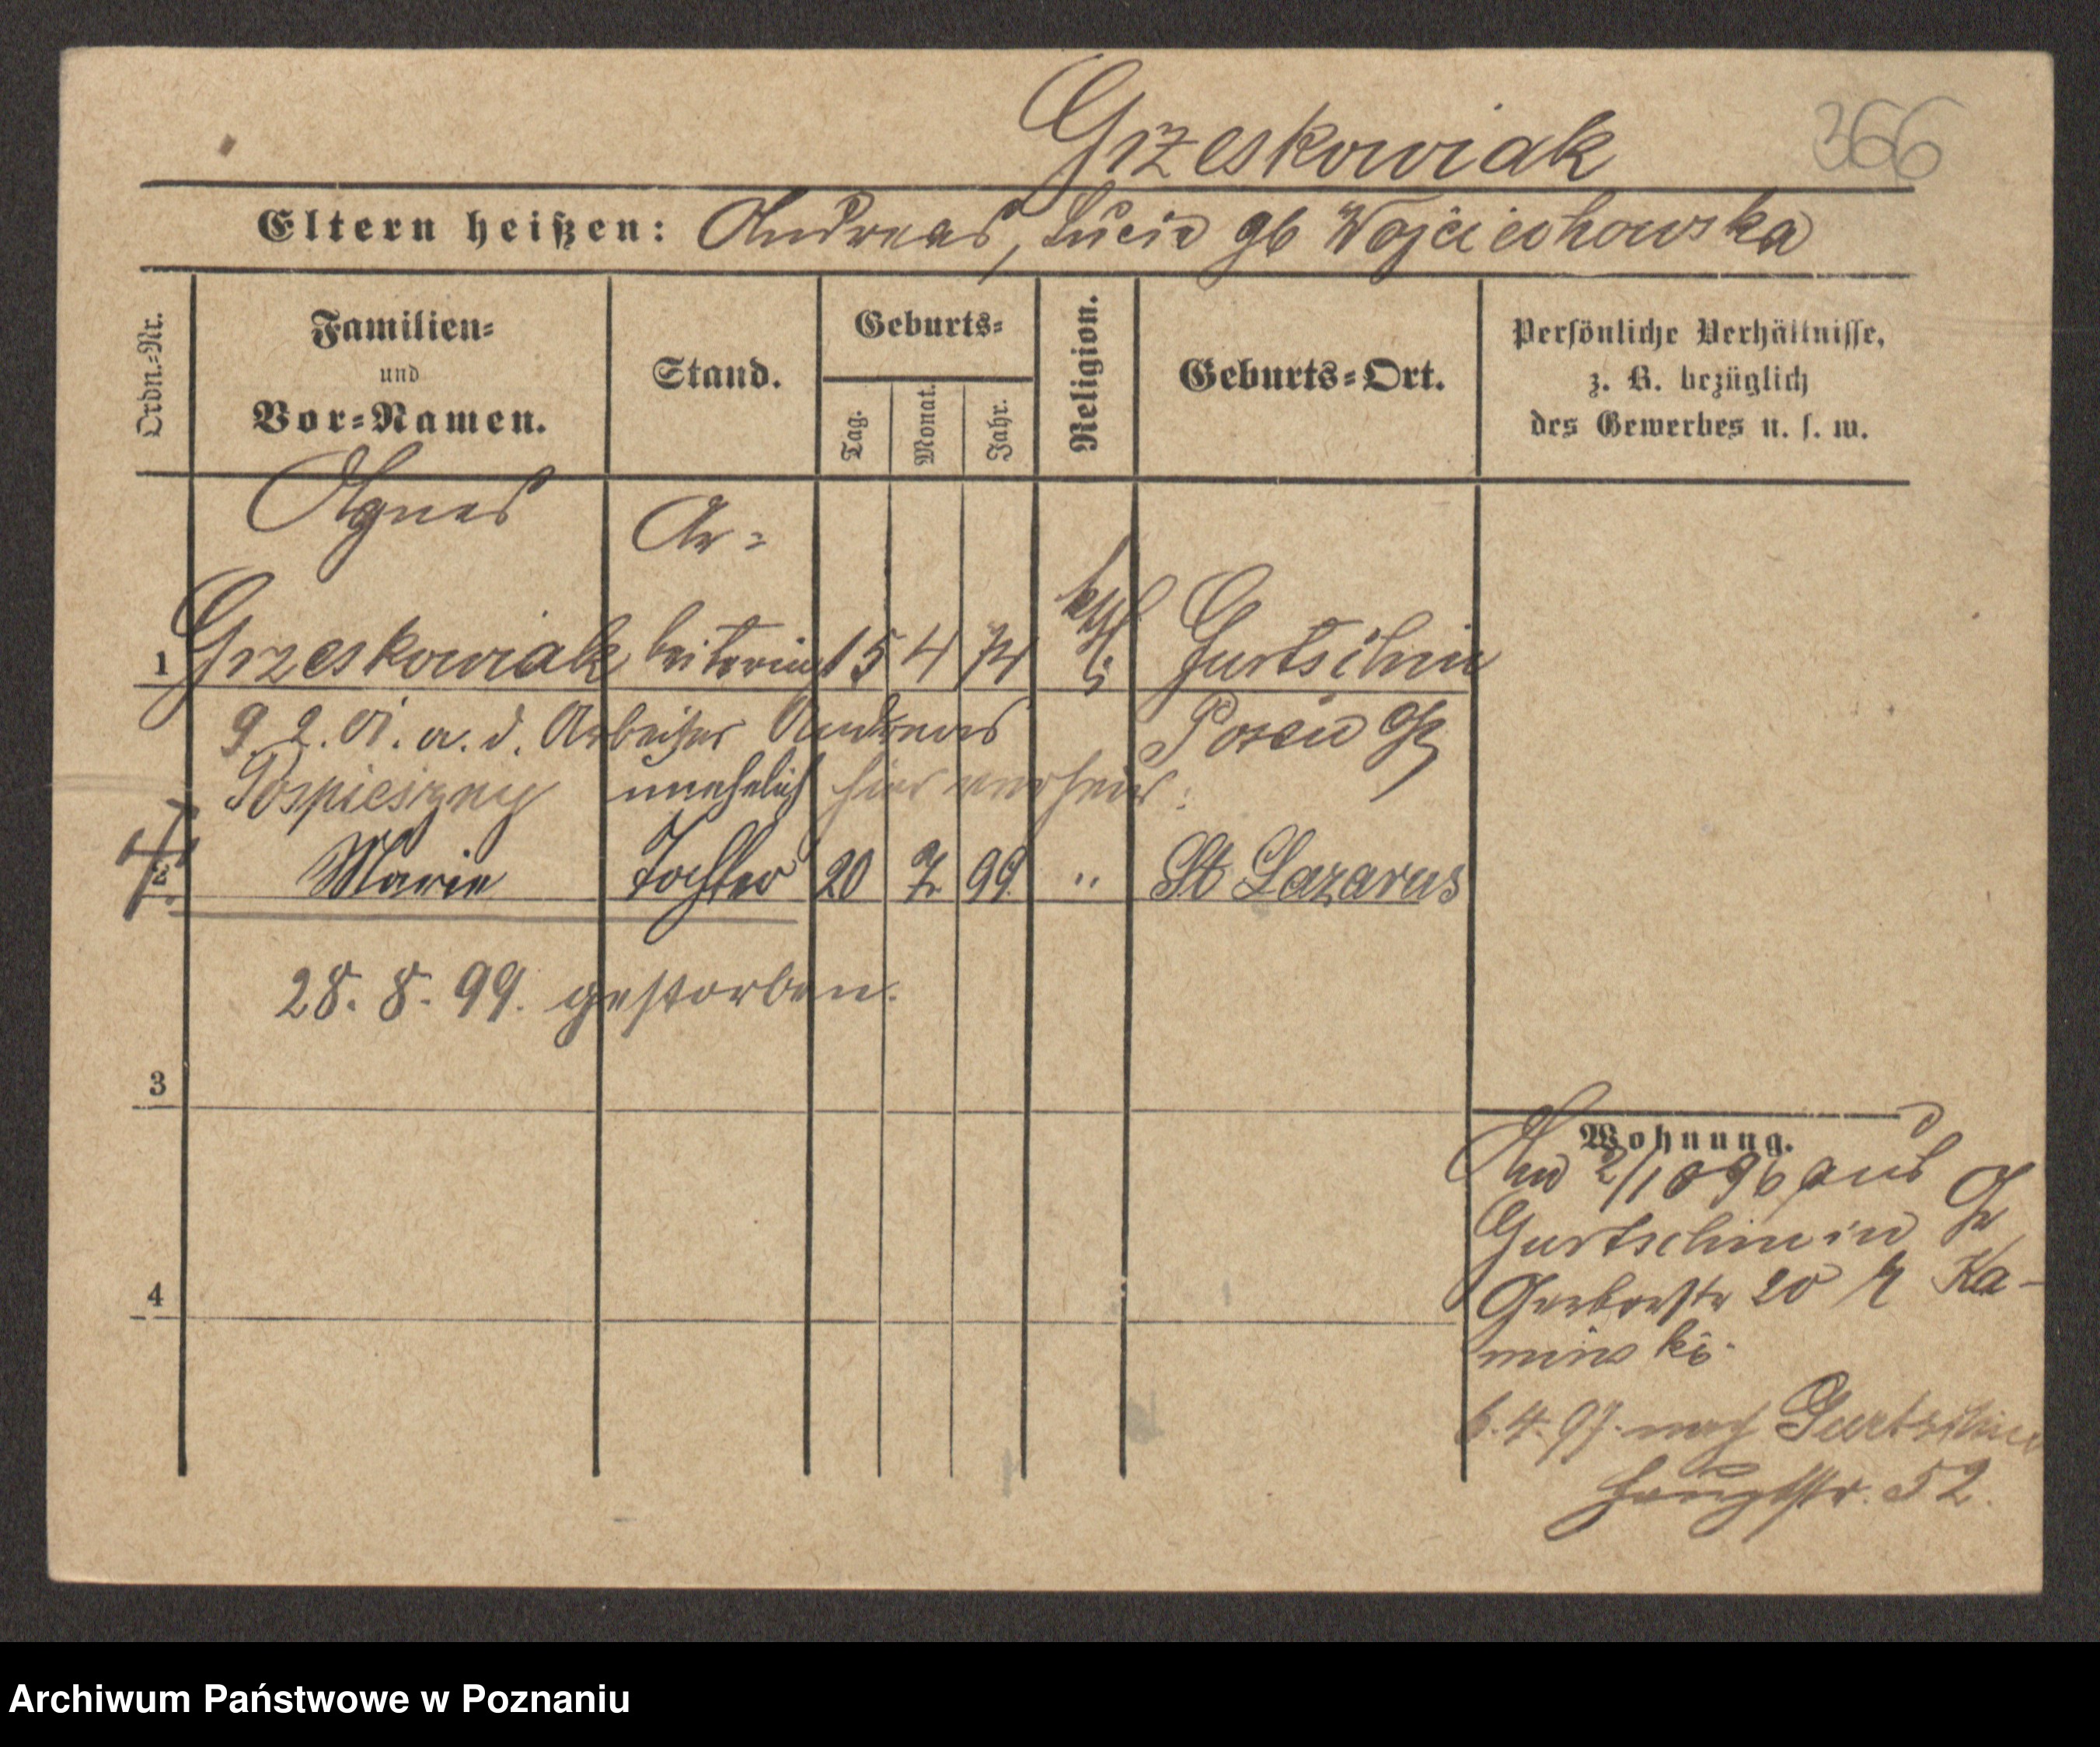 Grzeskowiak
366
Eltern heißen: Andreas, Lucia gb Wojciechowska
Ordn.-Nr.
Familien-
und
Vor-Namen.
Stand.
Geburts-
Tag.
Monat.
Jahr.
Religion.
Geburts-Ort.
Persönliche Verhältnisse,
z. B. bezüglich
des Gewerbes u. s. w.
Agnes Ar-
1 Grzeskowiak beiterin 15 4 74 kath Gurtschin
9. 2. 01. a. d. Arbeiter Andreas Posen
Pospieszny unehelich hier verheir.
2 Marie Tochter 20 7 99. " St Lazarus
28. 8. 99. gestorben.
3
4
Wohnung.
2/10 96 aus
Gurtschin in
Gerberstr 20 Ka-
minski.
6. 4. 97. nach Gurtschin
Hauptstr. 52.
Archiwum Państwowe w Poznaniu